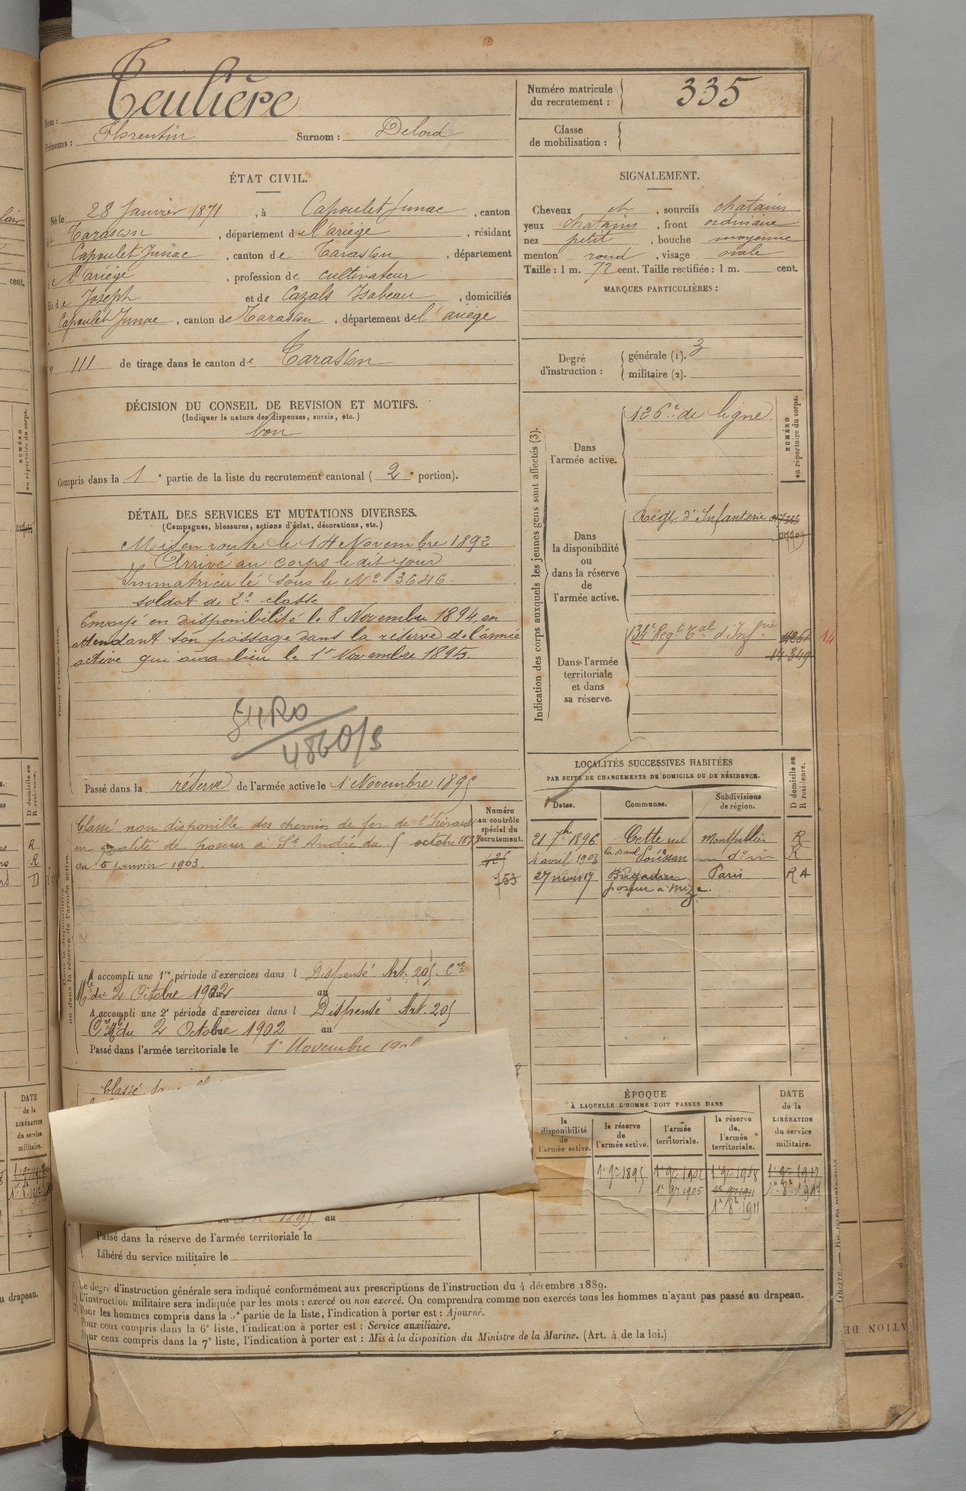 Nom : Teulière
Prénoms : Florentin Surnom : Delord
Numéro matricule du recrutement : 335
Classe de mobilisation :
ÉTAT CIVIL.
Né le 28 Janvier 1871, à Capoulet Junac, canton
de Tarascon, département de l'ariège, résidant
à Capoulet Junac, canton de Tarascon, département
d l'ariège, profession de cultivateur
fils de Joseph et de Cazals Isabeau, domiciliés
à Capoulet Junac, canton de Tarascon, département de l'ariège
N° 111 de tirage dans le canton de Tarascon
SIGNALEMENT.
Cheveux et, sourcils chatains
yeux chatains, front ordinaire
nez petit, bouche moyenne
menton rond, visage ovale
Taille : 1 m. 72 cent. Taille rectifiée : 1 m. cent.
MARQUES PARTICULIÈRES :
Degré d'instruction : générale (1). 3
militaire (2).
DÉCISION DU CONSEIL DE REVISION ET MOTIFS.
(Indiquer la nature des dispenses, sursis, etc.)
bon
Compris dans la 1e partie de la liste du recrutement cantonal (2e portion).
DÉTAIL DES SERVICES ET MUTATIONS DIVERSES.
(Campagnes, blessures, actions d'éclat, décorations, etc.)
Mis en route le 14 Novembre 1892
Arrivé au corps le dit jour
Immatriculé sous le No 3646.
soldat de 2e classe
Envoyé en disponibilité le 8 Novembre 1894, en
attendant son passage dans la réserve de l'armée
active qui aura lieu le 1er Novembre 1895.
4860/3
Passé dans la réserve de l'armée active le 1 Novembre 1895
Indication des corps auxquels les jeunes gens sont affectés (3).
NUMÉRO au répertoire du corps.
Dans l'armée active.
126e de ligne
Dans la disponibilité ou dans la réserve de l'armée active.
Régt d'Infanterie
Dans l'armée territoriale et dans sa réserve.
134e Régt Tal d'Infrie
14
Numéro au contrôle spécial du recrutement.
Classé non disponible des chemins de fer de l'Hérault
en qualité de poseur à St André du 5 octobre 1897
au 5 Janvier 1903.
753
A accompli une 1re période d'exercices dans l Dispensé Art. 205. Cre
Mle du 2 Octobre 1902 au
A accompli une 2e période d'exercices dans l Dispensé Art. 205
Cre Mle du 2 Octobre 1902 au
Passé dans l'armée territoriale le 1er Novembre
Classé
LOCALITÉS SUCCESSIVES HABITÉES
PAR SUITE DE CHANGEMENTS DE DOMICILE OU DE RÉSIDENCE.
Dates. Communes. Subdivisions de région. D domicile ou R résidence.
21 7bre 1896 Cette Montpellier R
4 avril 1903 Loissan do R
27 Paris R
poseur à Mèze.
ÉPOQUE
À LAQUELLE L'HOMME DOIT PASSER DANS
la disponibilité de l'armée active.
la réserve de l'armée active.
l'armée territoriale.
la réserve de l'armée territoriale.
DATE de la LIBÉRATION du service militaire.
1er 9bre 1895
1er 9bre 1905
1er 8bre 1911
Passé dans la réserve de l'armée territoriale le
Libéré du service militaire le
Le degré d'instruction générale sera indiqué conformément aux prescriptions de l'instruction du 4 décembre 1889.
L'instruction militaire sera indiquée par les mots : exercé ou non exercé. On comprendra comme non exercés tous les hommes n'ayant pas passé au drapeau.
Pour les hommes compris dans la 5e partie de la liste, l'indication à porter est : Ajourné.
Pour ceux compris dans la 6e liste, l'indication à porter est : Service auxiliaire.
Pour ceux compris dans la 7e liste, l'indication à porter est : Mis à la disposition du Ministre de la Marine. (Art. 4 de la loi.)